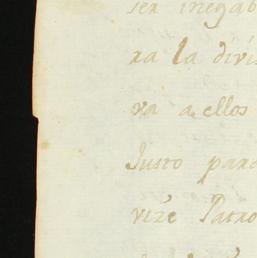 ser inegab
ra la divis
va a ellos
Justo para
vize Patro